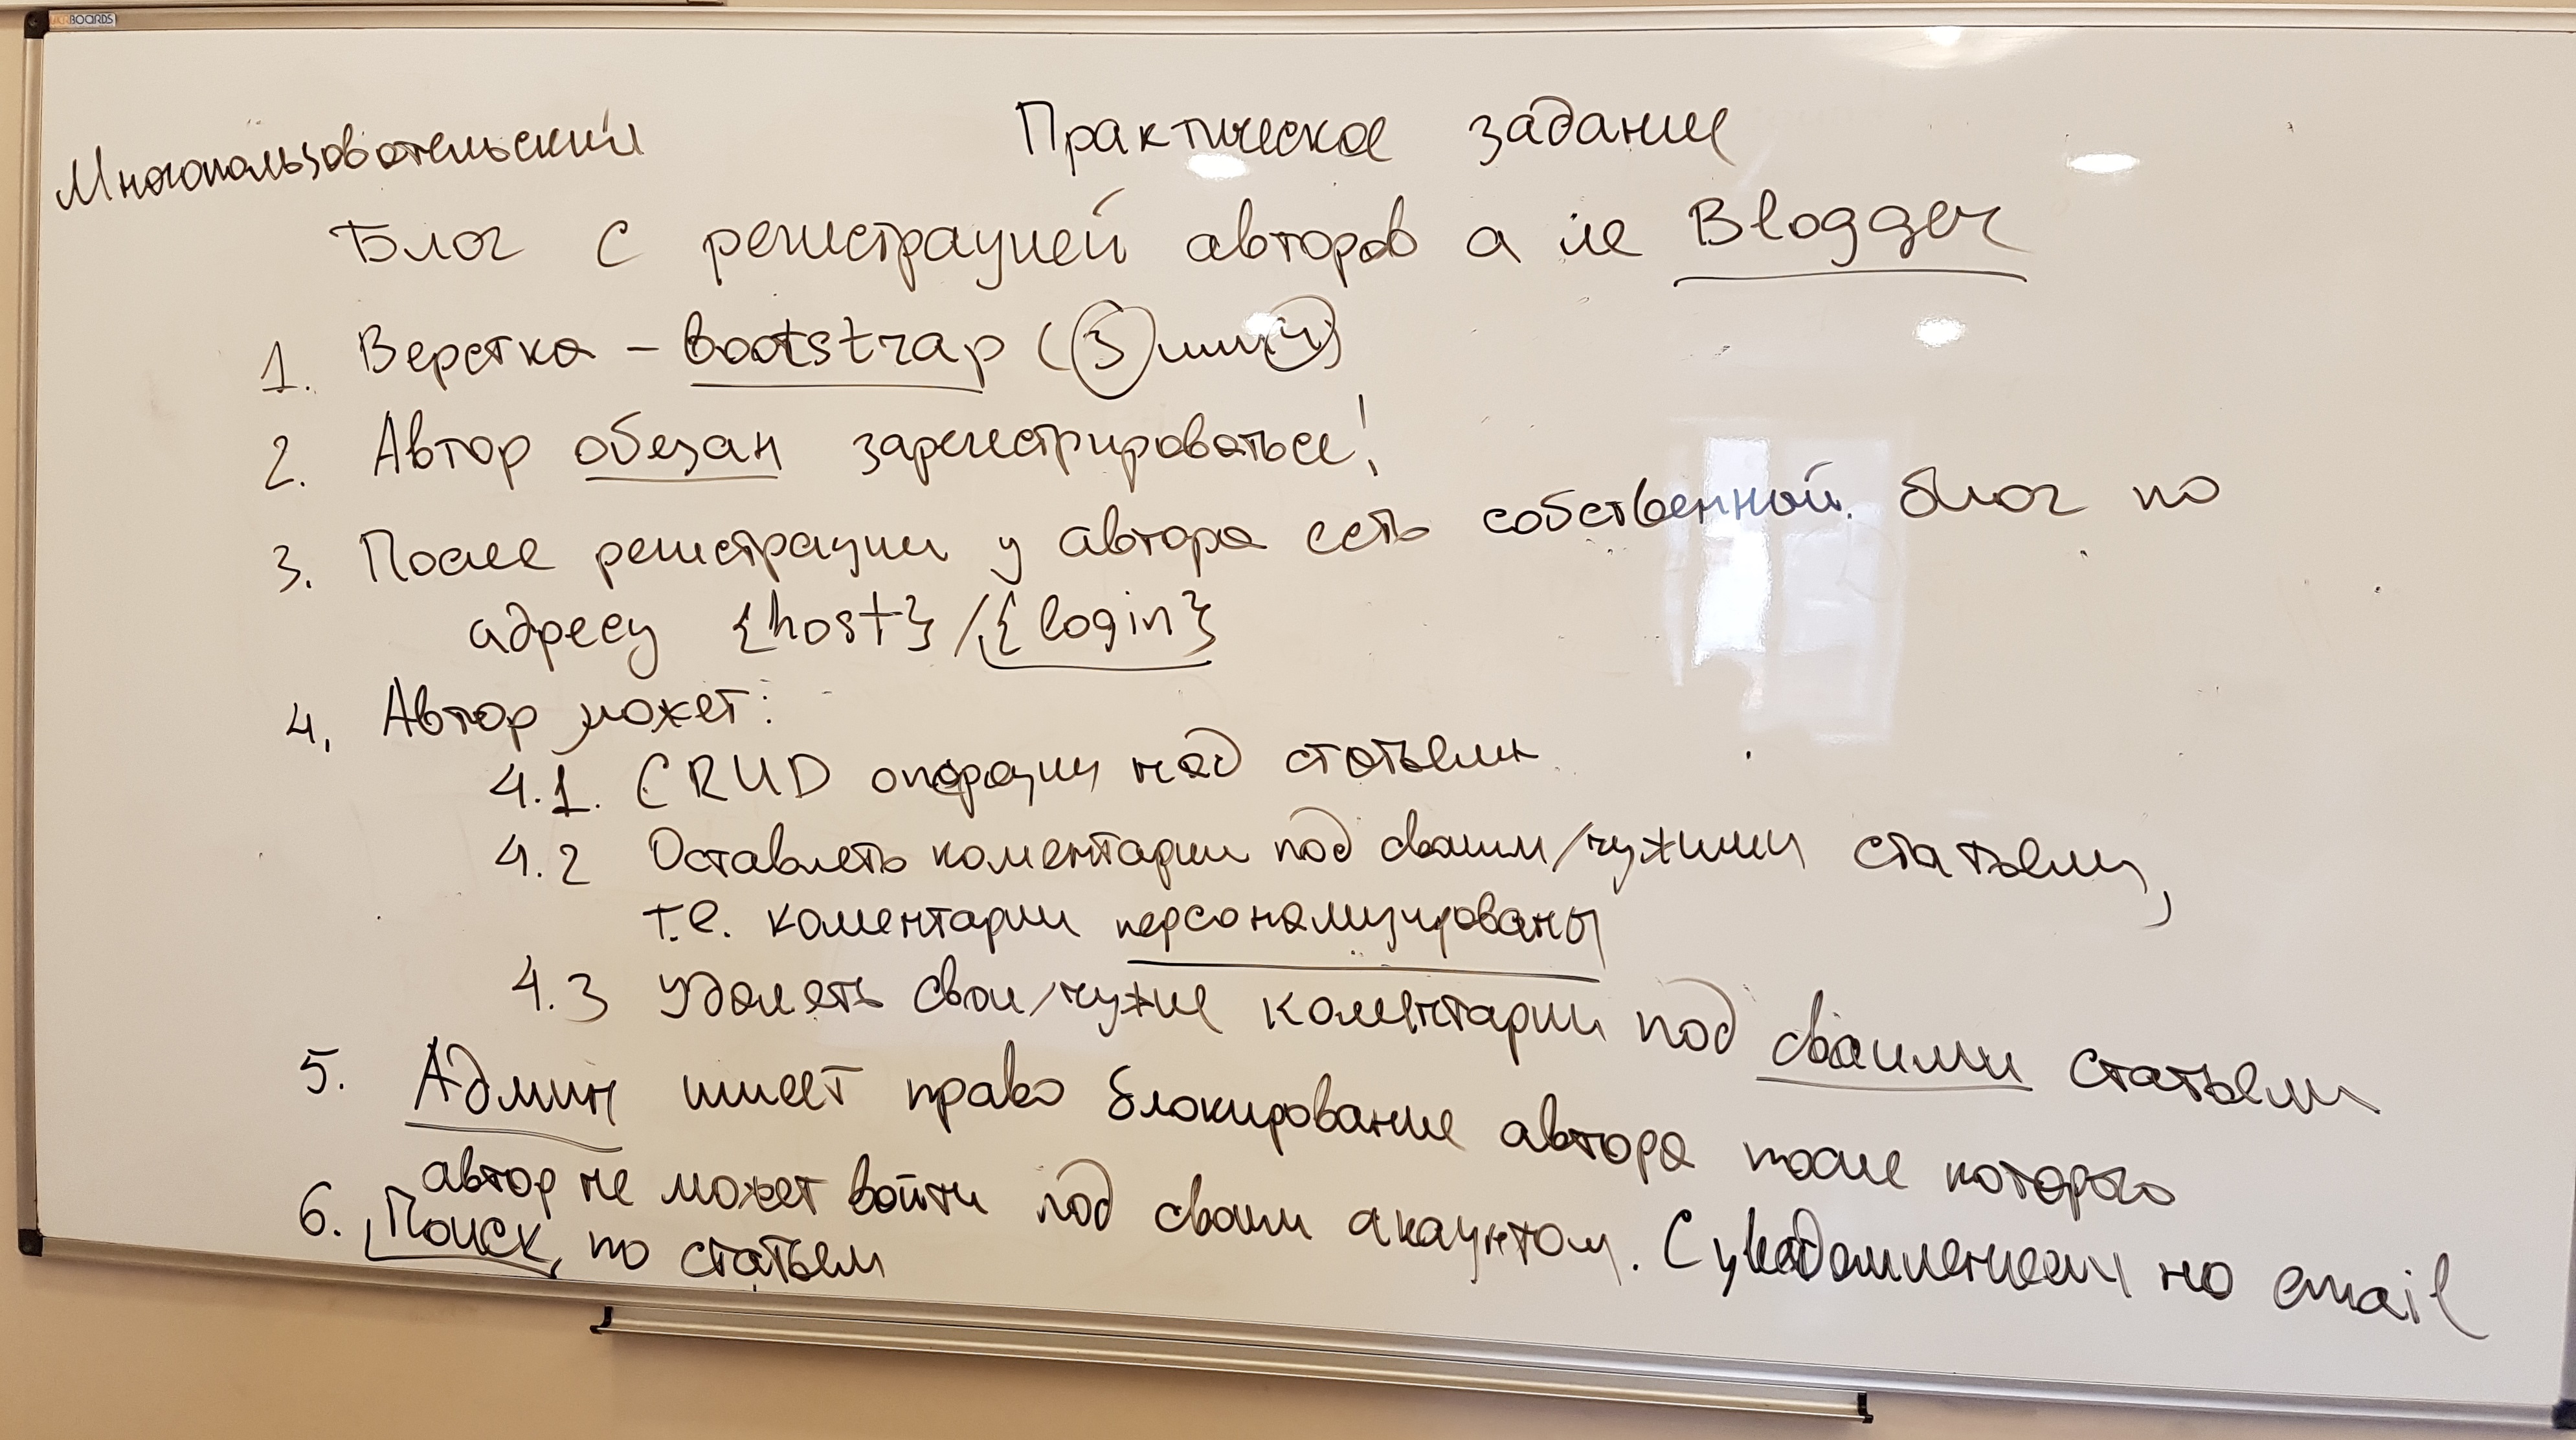 UKRBOARDS
Практическое задание
Многопользовательский
Блог с регистрацией авторов а ле Blogger
1. Верстка - bootstrap (3 или 4)
2. Автор обезан зарегистрироваться!
3. После регистрации у автора есть собственный блог по
адресу {host}/{login}
4. Автор может:
4.1. CRUD операции над статьями
4.2 Оставлять коментарии под своим/чужими статьями,
т.е. коментарии персонализированы
4.3 Удалять свои/чужие коментарии под своими статьями
5. Админ имеет право блокирование автора после которого
автор не может войти под своим акаунтом. С уведомлением на email
6. Поиск по статьям